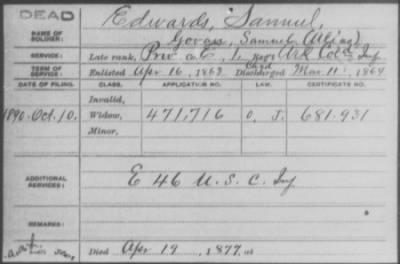 DEAD
NAME OF SOLDIER: Edwards, Samuel,
Samuel (Alias)
SERVICE: Late rank, Priv Co. C, 1 Reg't Ark Cold Inf
TERM OF SERVICE: Enlisted Apr 16, 1863 Discharged Mar. 11, 1864
DATE OF FILING. CLASS. APPLICATION NO. LAW. CERTIFICATE NO.
Invalid,
1890. Oct. 10. Widow, 471,716 O, J. 681.931
Minor,
ADDITIONAL SERVICES: E 46 U.S.C. Inf
REMARKS:
Died Apr 19, 1877, at